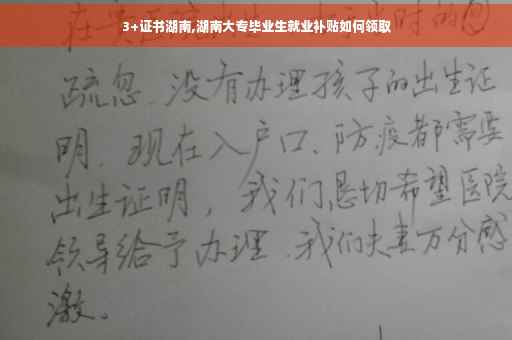 3+证书湖南,湖南大专毕业生就业补贴如何领取
疏忽.没有办理孩子的出生证
明.现在入户口、防疫都需要
出生证明，我们恳切希望医院
领导给予办理.我们夫妻万分感
激。